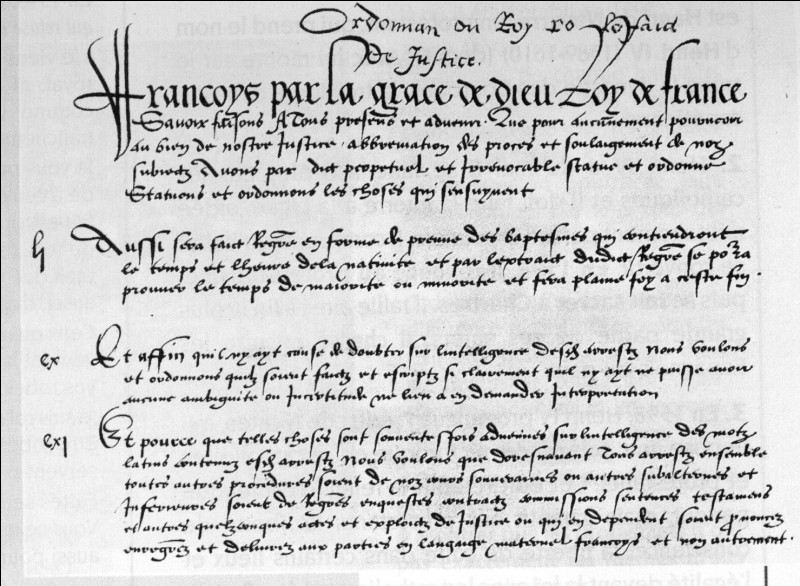 Ordonnan du Roy
De Justice.
Francoys par la grace de dieu Roy de france
Savoir faisons A Tous presens et advenir. Que pour aucunement pourveoir
au bien de nostre Justice abbreviation des proces et soulagement de noz
subiectz Avons par dict perpetuel et Irrevocable statue et ordonne
Statuons et ordonnons les choses qui sensuyvent
lj Aussi sera faict Regre en forme de preuve des baptesmes qui contiendront
le temps et lheure de la nativite et par lextraict dudict Regre se porra
prouver le temps de maiorite ou minorite et fera plaine foy a ceste fin.
cx Et affin quil ny ayt cause de doubter sur lintelligence desdi arrestz Nous voulons
et ordonnons quilz soient faictz et escriptz si clairement quil ny ayt ne puisse avoir
aucune ambiguite ou Incertitude ne lieu a en demander Interpretation
cxj Et pource que telles choses sont souventesfois advenues sur lintelligence des motz
latins contenuz esdi arrestz Nous voulons que doresnavant Tous arrestz ensemble
toutes autres procedures soient de noz cours souveraines ou autres subalternes et
Inferieures soient de Regres enquestes contractz commissions sentences testamens
et autres quelzconques actes et exploictz de Justice ou qui en dependent soient prononcez
enregrez et delivrez aux parties en langage maternel francoys et non autrement.